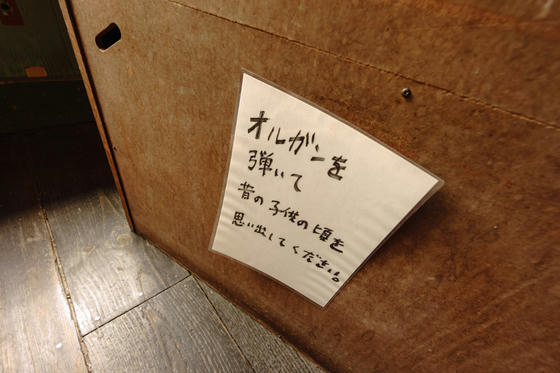 オルガンを
弾いて
昔の子供の頃を
思い出してください。